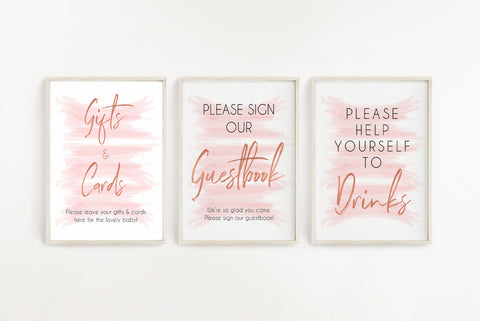 Gifts
&
Cards
Please leave your gifts & cards
here for the lovely baby!
PLEASE SIGN
OUR
Guestbook
We're so glad you came.
Please sign our guestbook!
PLEASE
HELP
YOURSELF
TO
Drinks